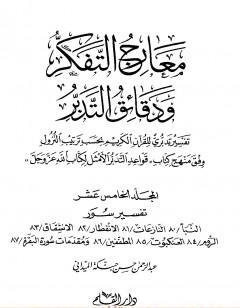 معارج التفكر
ودقائق التدبر
تفسير تدبري للقرآن الكريم بحسب ترتيب النزول
وفق منهج كتاب «قواعد التدبر الأمثل لكتاب الله عز وجل»
المجلد الخامس عشر
تفسير سور
النبأ/٨٠ النازعات/٨١ الانفطار/٨٢ الانشقاق/٨٣
الروم/٨٤ العنكبوت/٨٥ المطففين/٨٦ ومقدمات سورة البقرة/٨٧
عبد الرحمن حسن حبنكة الميداني
دار القلم